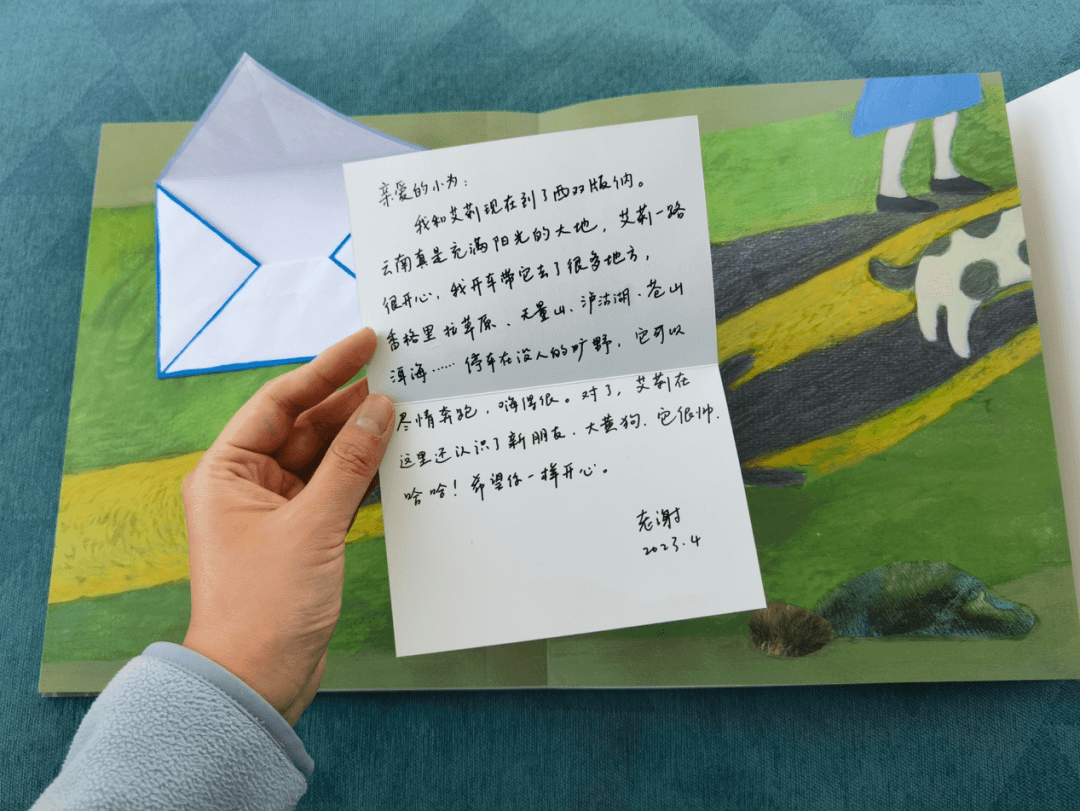 亲爱的小为：
我和艾莉现在到了西双版纳。
云南真是充满阳光的大地，艾莉一路
很开心，我开车带它去了很多地方，
香格里拉草原、无量山、泸沽湖、苍山
洱海……停车在没人的旷野，它可以
尽情奔跑，嗨得很。对了，艾莉在
这里还认识了新朋友，大黄狗，它很帅，
哈哈！希望你一样开心。
老谢
2023.4